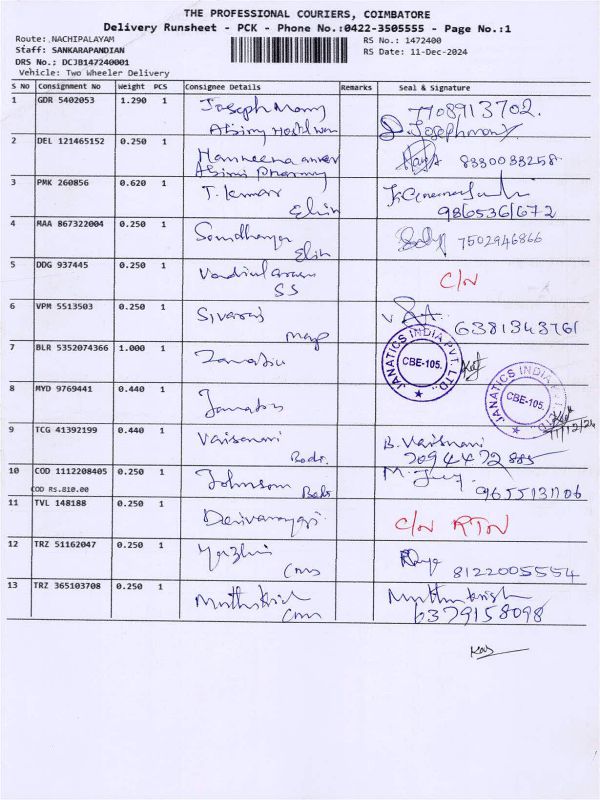 THE PROFESSIONAL COURIERS, COIMBATORE
Delivery Runsheet - PCK - Phone No.:0422-3505555 - Page No.:1
Route: NACHIPALAYAM RS No.: 1472400
Staff: SANKARAPANDIAN RS Date: 11-Dec-2024
DRS No.; DCJB147240001
Vehicle: Two Wheeler Delivery
S No Consignment No Weight PCS Consignee Details Remarks Seal & Signature
1 GDR 5402053 1.290 1 Joseph Mary 7708913702.
2 DEL 121465152 0.250 1 8330083258
3 PMK 260856 0.620 1 T. Kumar
Elin 9865361672
4 MAA 867322004 0.250 1 7502946866
Elin
5 DDG 937445 0.250 1 C/N
SS
6 VPM 5513503 0.250 1 Sivaraj 6381343761
7 BLR 5352074366 1.000 1
JANATICS INDIA PVT. LTD.
CBE-105.
8 MYD 9769441 0.440 1
JANATICS INDIA PVT. LTD.
CBE-105.
11/12/24
9 TCG 41392199 0.440 1 Vaisanavi B. Vaishnavi
7094472885
10 COD 1112208405 0.250 1 Johnson
COD RS.810.00 9655131106
11 TVL 148188 0.250 1 C/N RTN
12 TRZ 51162047 0.250 1
8122005554
13 TRZ 365103708 0.250 1 Muthukrish Muthukrish
6379158098